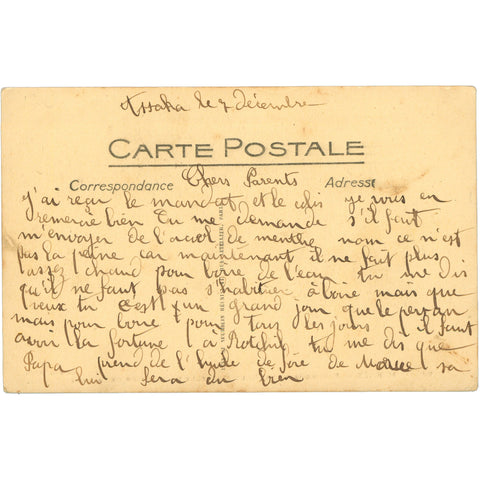 Assaka le 7 décembre
CARTE POSTALE
Correspondance Adresse
Chers Parents
j'ai reçu le mandat et le colis je vous en
remercie bien Tu me demande s'il faut
m'envoyer de l'acool de menthe nom ce n'est
pas la peine car maintenant il ne fait plus
assez chaud pour boire de l'eau tu me dis
qu'il ne faut pas s'habituer à boire mais que
veux tu c'est un grand jour que le
mais pour boire tous les jours il faut
avoir la fortune à Rotchild tu me dis que
Papa prend de l'huile de foie de Morue sa
lui fera du bien